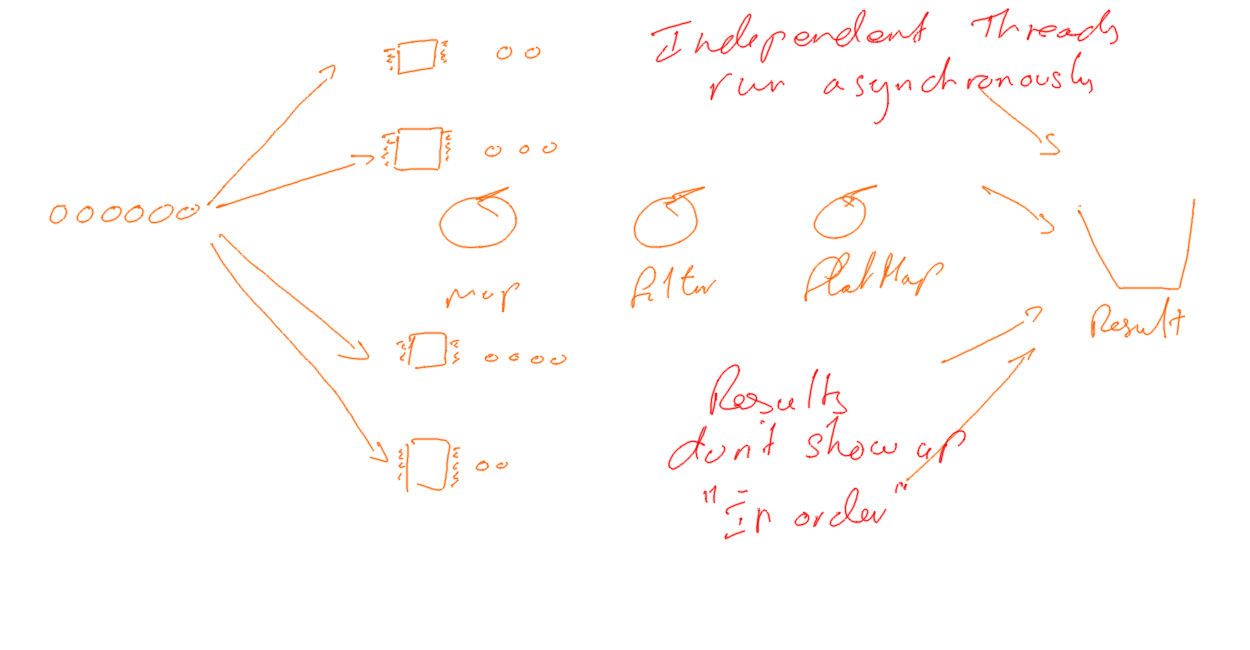 Independent Threads
run asynchronously
map
filter
FlatMap
Result
Results
don't show up
"In order"